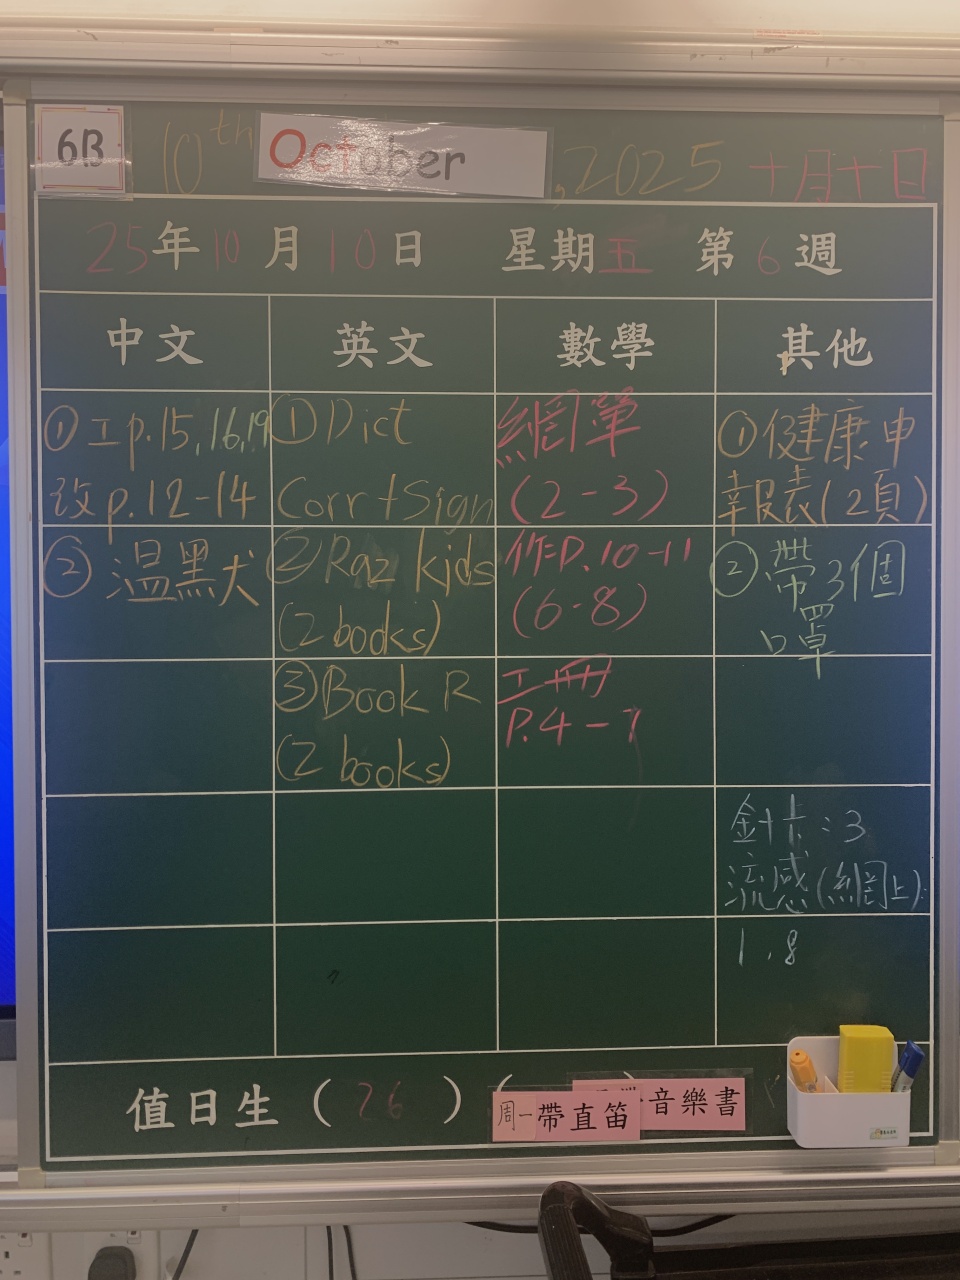 6B
10th October, 2025 十月十日
25年10月10日 星期五 第6週
中文 英文 數學 其他
①工p.15,16,19
改p.12-14
②溫黑犬
①Dict
Corr+Sign
②Raz kids
(2 books)
③Book R
(2 books)
網單
(2-3)
作P.10-11
(6-8)
工冊
P.4-7
①健康申
報表(2頁)
②帶3個
口罩
針卡:3
流感(網上):
1.8
值日生(26)(
周一帶直笛
音樂書